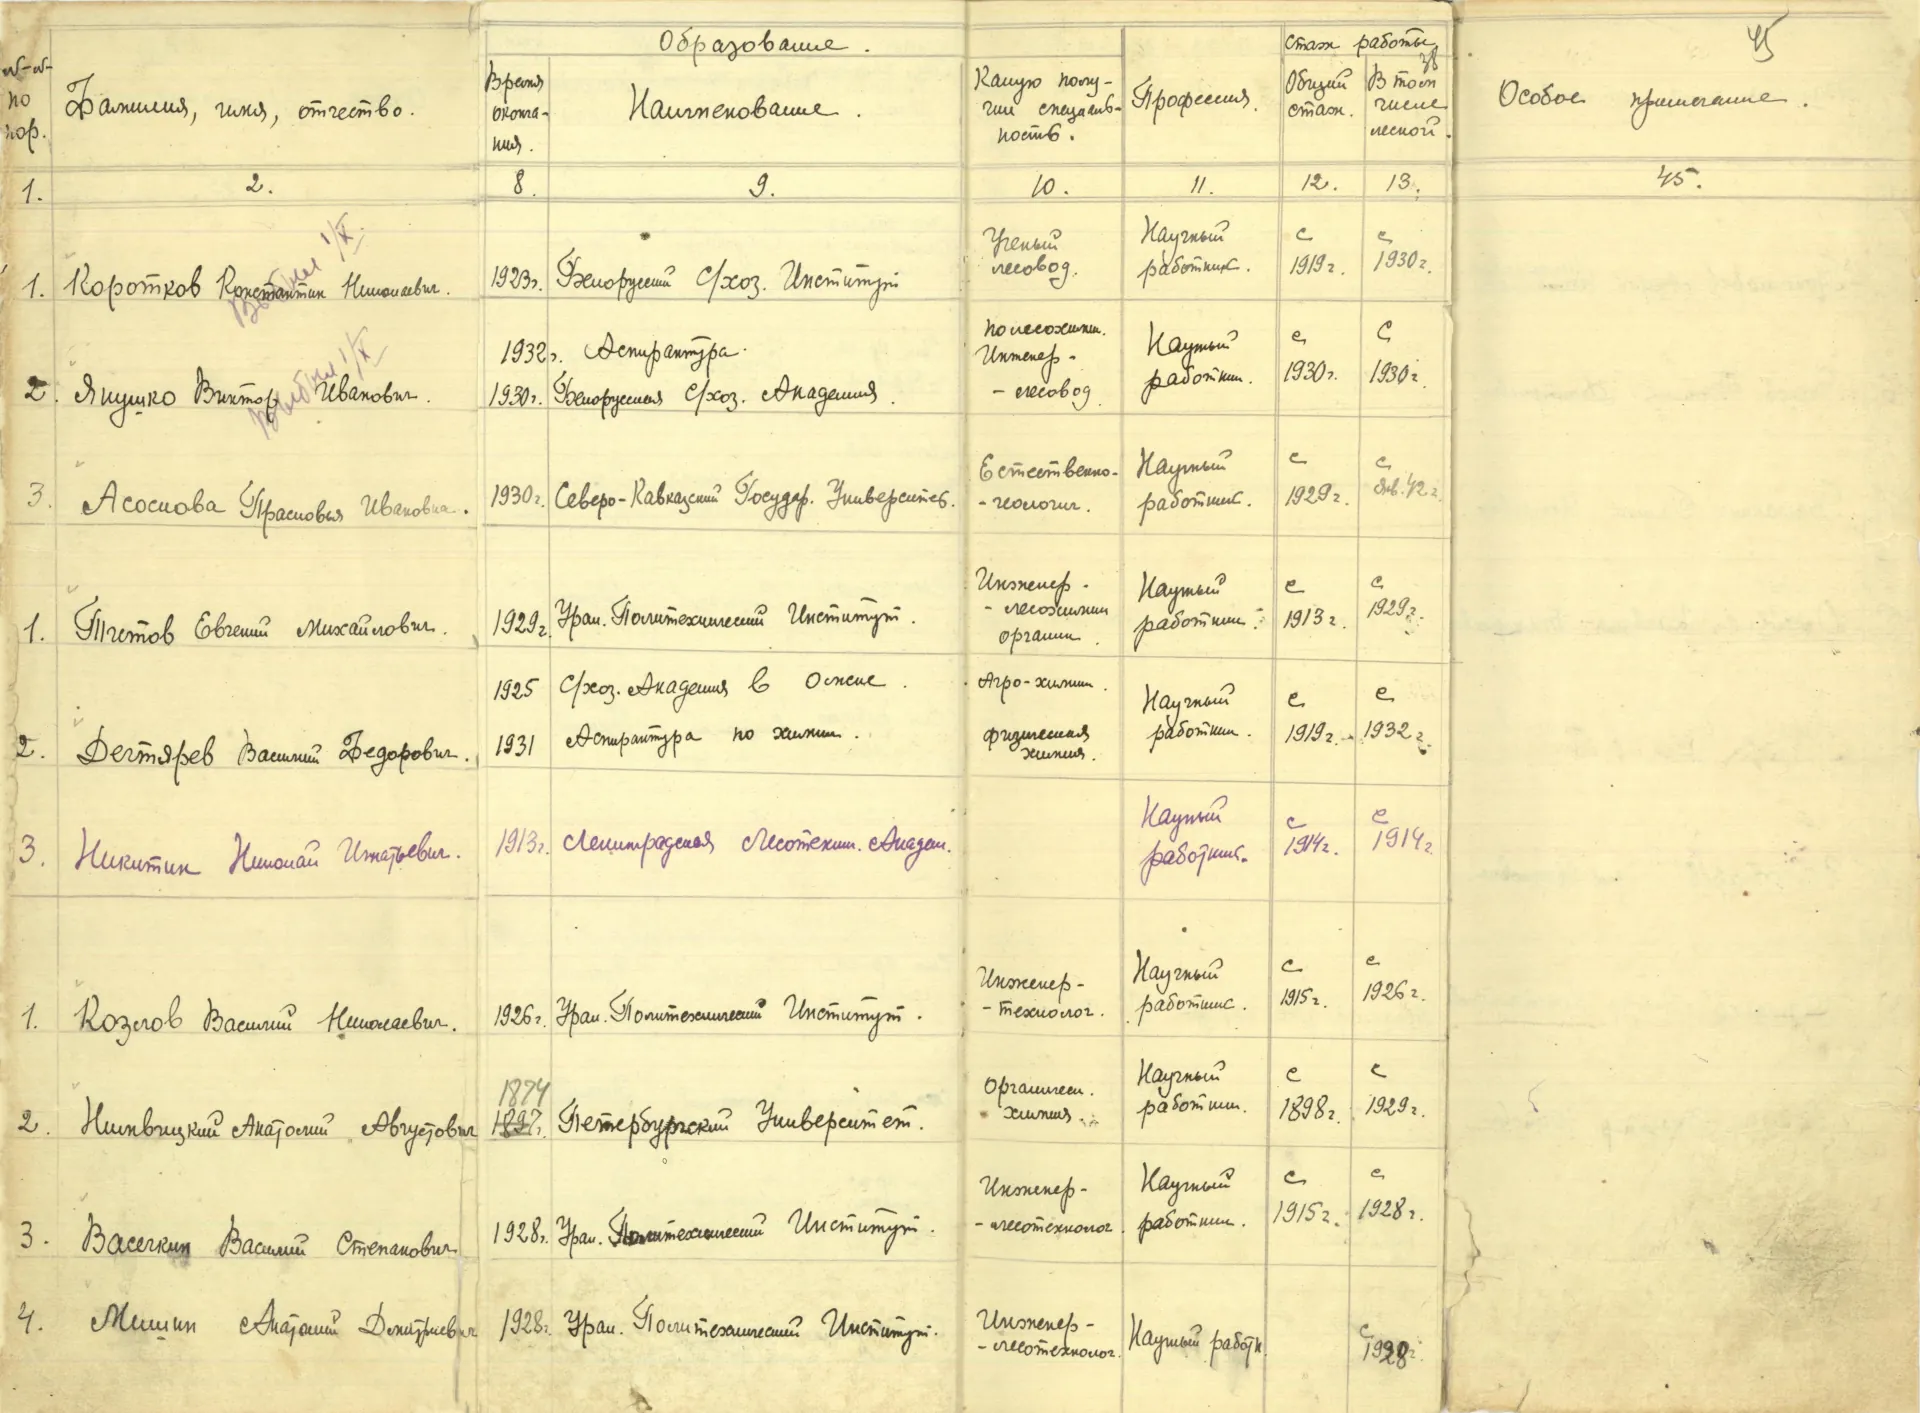 Образование.
стаж работы
45
38
№-№ по пор.
Фамилия, имя, отчество.
Время окончания.
Наименование.
Какую получил специальность.
Профессия.
Общий стаж.
В том числе лесной.
Особое примечание.
1. 2. 8. 9. 10. 11. 12. 13. 45.
Выбыл 1/X
1. Коротков Константин Николаевич. 1923г. Белорусский с/хоз. Институт Ученый лесовод. Научный работник. с 1919г. с 1930г.
Выбыл 1/X
1932г. Аспирантура. по лесохимии.
2. Янушко Виктор Иванович. 1930г. Белорусская с/хоз. Академия. Инженер-лесовод Научный работник. с 1930г. с 1930г.
3. Асоскова Прасковья Ивановна. 1930г. Северо-Кавказский Государ. Университет. Естественно-геологич. Научный работник. с 1929г. с Янв. 42г.
1. Тчетов Евгений Михайлович. 1929г. Урал. Политехнический Институт. Инженер-лесохимик органик Научный работник. с 1913г. с 1929г.
1925 с/хоз. Академия в Омске. Агро-химик.
2. Дегтярев Василий Федорович. 1931 Аспирантура по химии. физическая химия. Научный работник. с 1919г. с 1932г.
3. Никитин Николай Игнатьевич. 1913г. Ленинградская Лесотехнич. Академ. Научный работник. с 1914г. с 1914г.
1. Козлов Василий Николаевич. 1926г. Урал. Политехнический Институт. Инженер-технолог. Научный работник. с 1915г. с 1926г.
1874
2. Нимвицкий Анатолий Августович 1897г. Петербургский Университет. Органическ. химия. Научный работник. с 1898г. с 1929г.
3. Васечкин Василий Степанович 1928г. Урал. Политехнический Институт. Инженер-лесотехнолог. Научный работник. с 1915г. с 1928г.
4. Мишин Анатолий Дмитриевич 1928г. Урал. Политехнический Институт. Инженер-лесотехнолог. Научный работн. с 1928г.